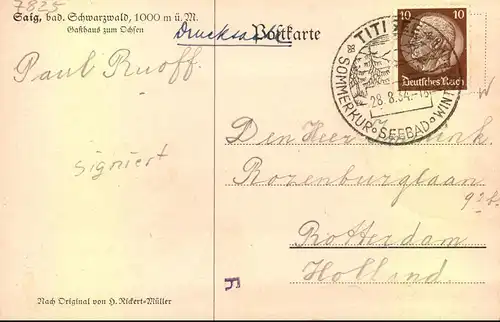 7825
Saig, bad. Schwarzwald, 1000 m ü. M.
Gasthaus zum Ochsen
Drucksache
Postkarte
Paul Ruoff.
signiert
TITISEE
28.8.34.-18
SOMMERKUR · SEEBAD · WINT
10 10
Deutsches Reich
Den Heer
Rozenburglaan
92
Rotterdam
Holland.
F
Nach Original von H. Rickert-Müller